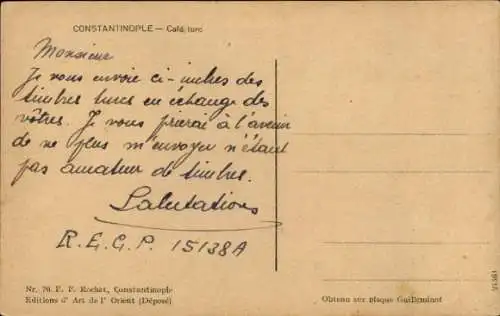 CONSTANTINOPLE — Café turc
Monsieur
Je vous envoie ci-inclus des
timbres turcs en échange des
vôtres. Je vous prierai à l'avenir
de ne plus m'envoyer n'étant
pas amateur de timbres.
Salutations
R.E.G.P. 15138A
Nr. 76. F. F. Rochat, Constantinople
Editions d' Art de l' Orient (Déposé)
Obtenu sur plaque Guilleminot